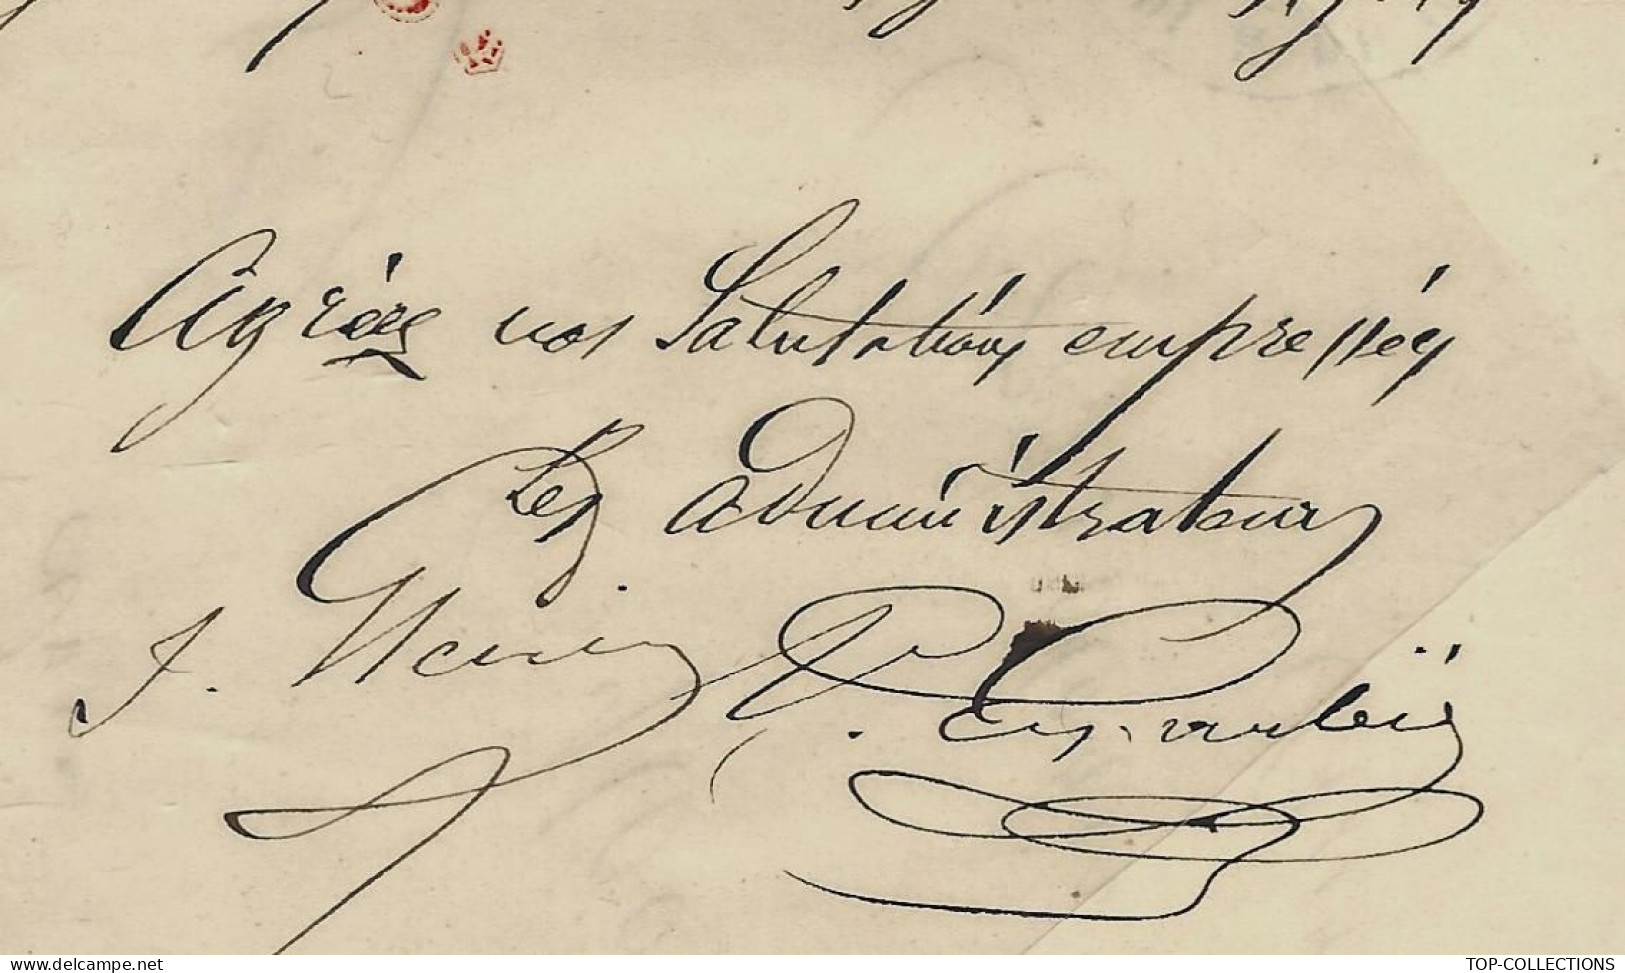 Agréez nos Salutations empressées
Les administrateurs
J. Henri P.
delcampe.net
TOP-COLLECTIONS